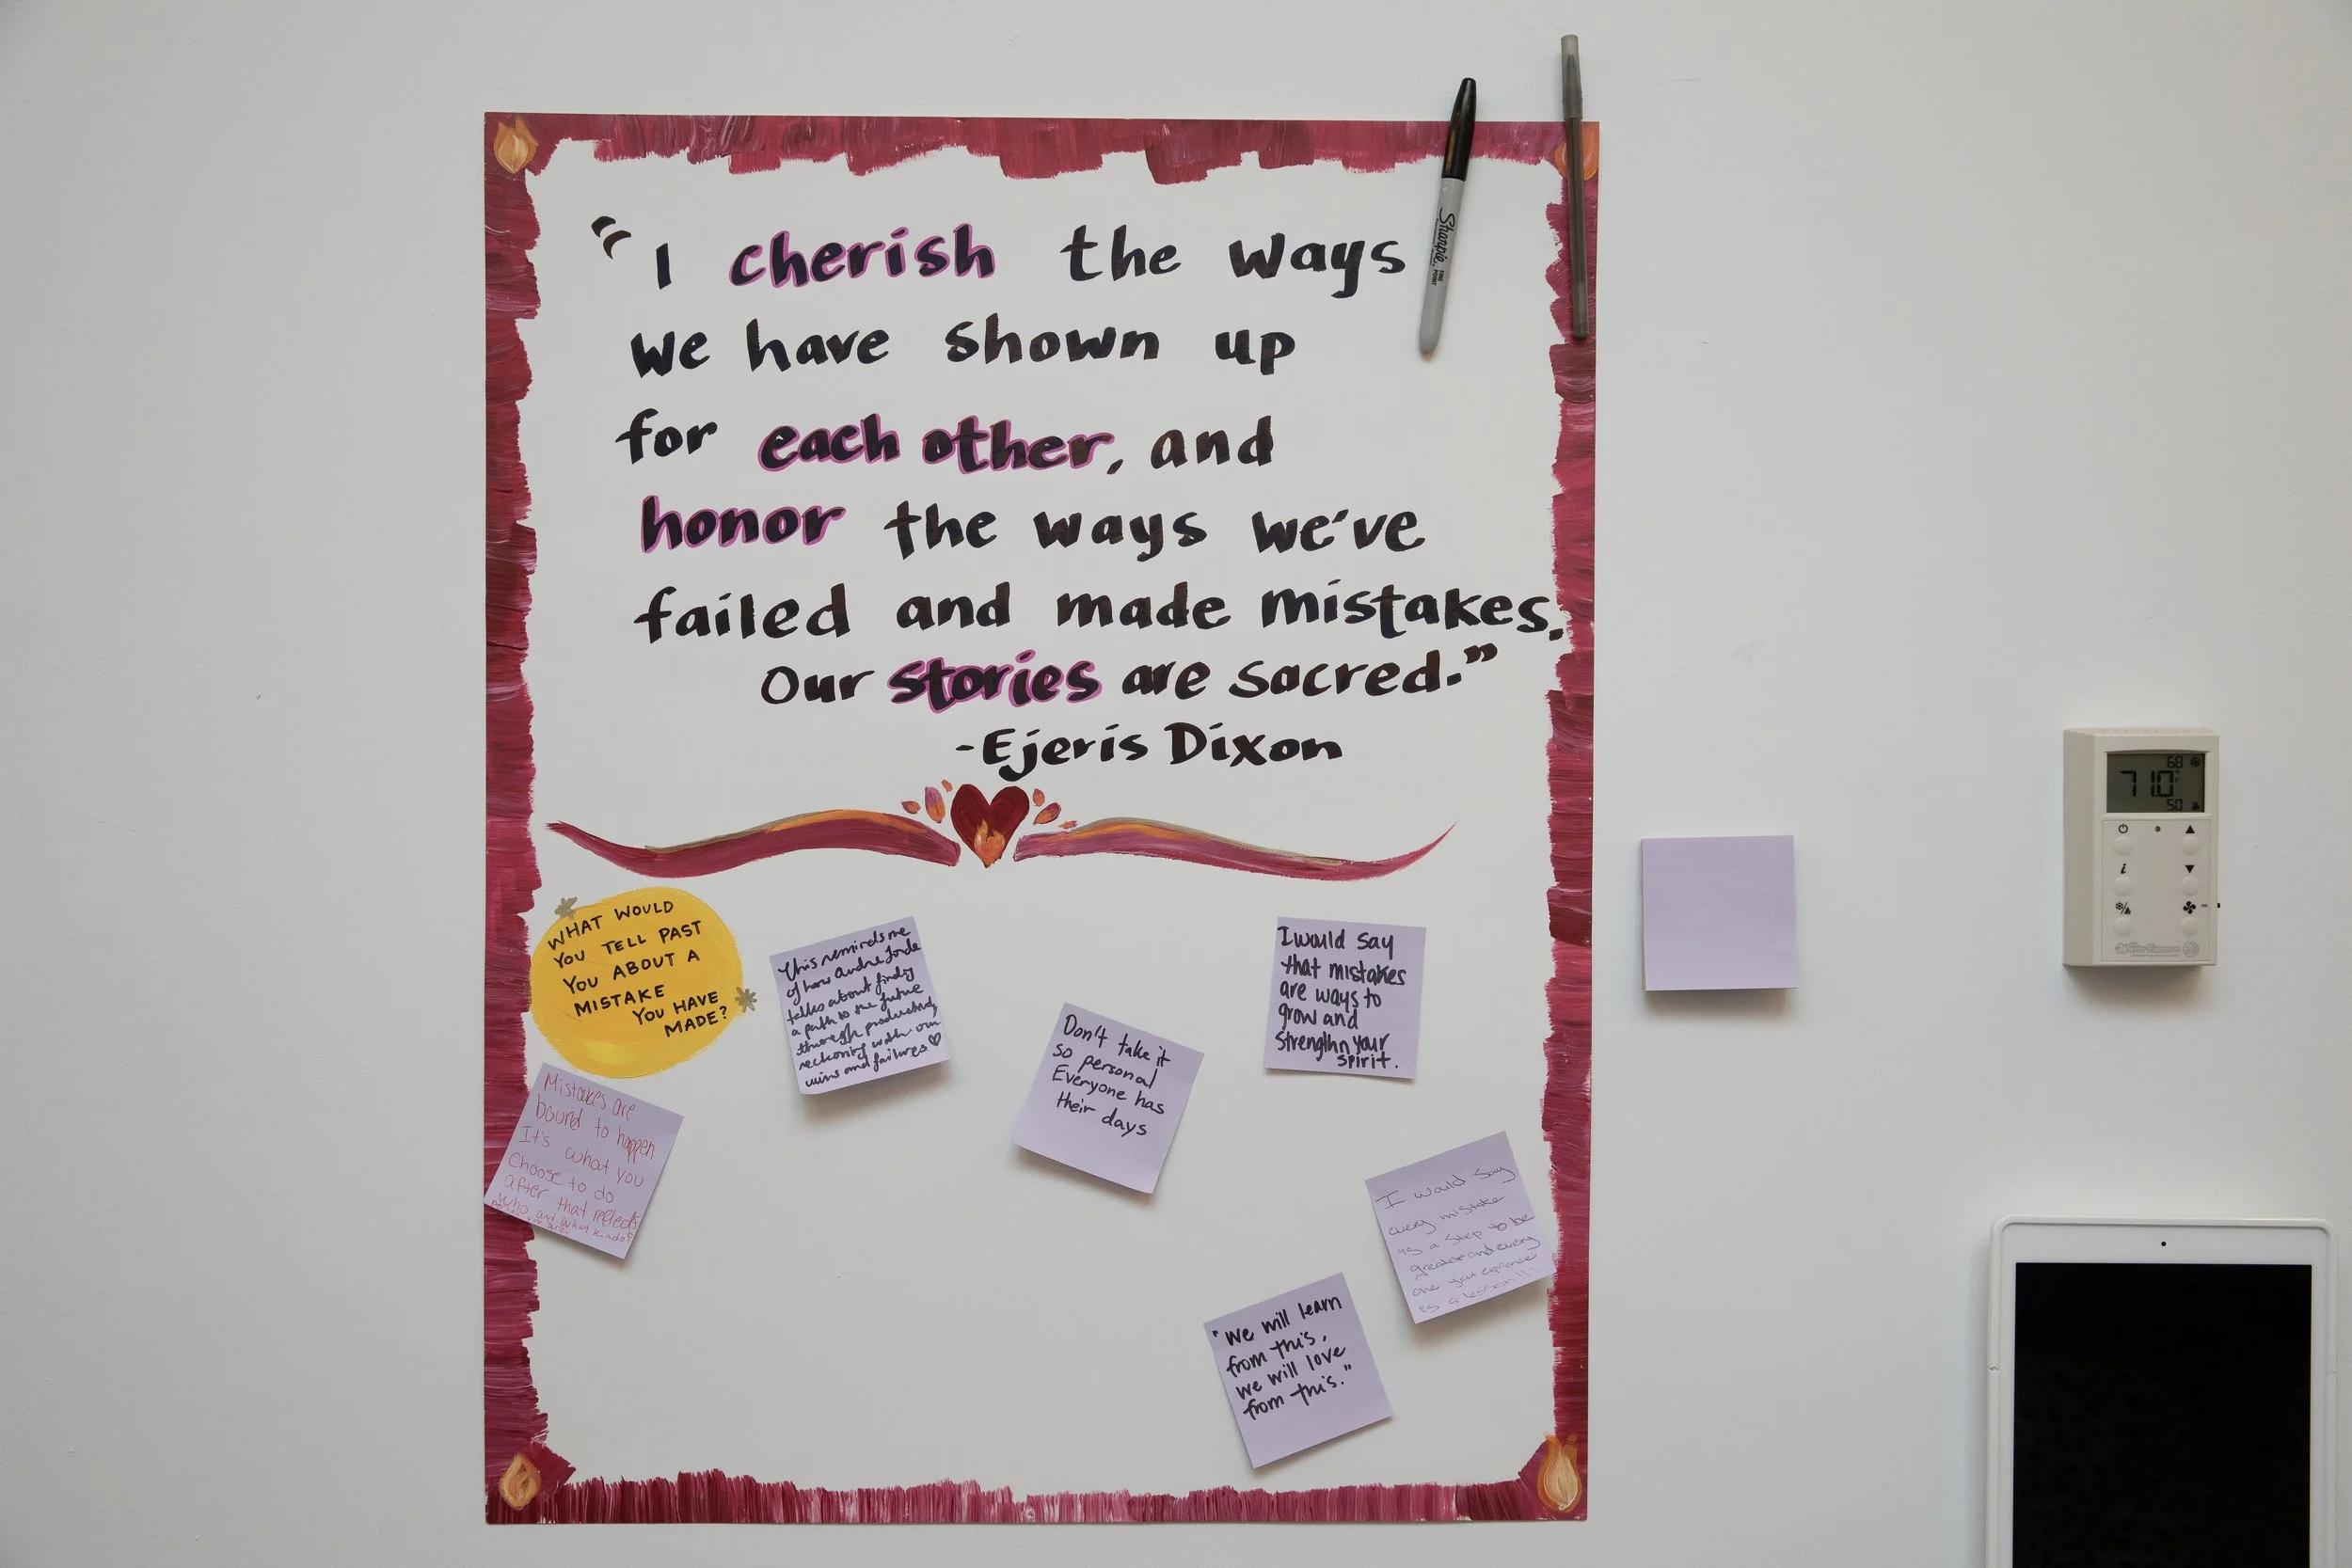 "I cherish the ways
we have shown up
for each other, and
honor the ways we've
failed and made mistakes.
Our stories are sacred."
-Ejeris Dixon
WHAT WOULD
YOU TELL PAST
YOU ABOUT A
MISTAKE
YOU HAVE
MADE?
This reminds me
of how Audre Lorde
talks about finding
a path to our future
through productively
reckoning with our
wins and failures ♡
I would say
that mistakes
are ways to
grow and
strengthn your
spirit.
Don't take it
so personal
Everyone has
their days
Mistakes are
bound to happen
It's what you
choose to do
after that reflects
who and what kind of
I would say
every mistake
is a step to be
greater and every
one you experience
is a lesson!!!
"We will learn
from this,
we will love
from this."
Sharpie.
FINE
POINT
68
71.0
50
i